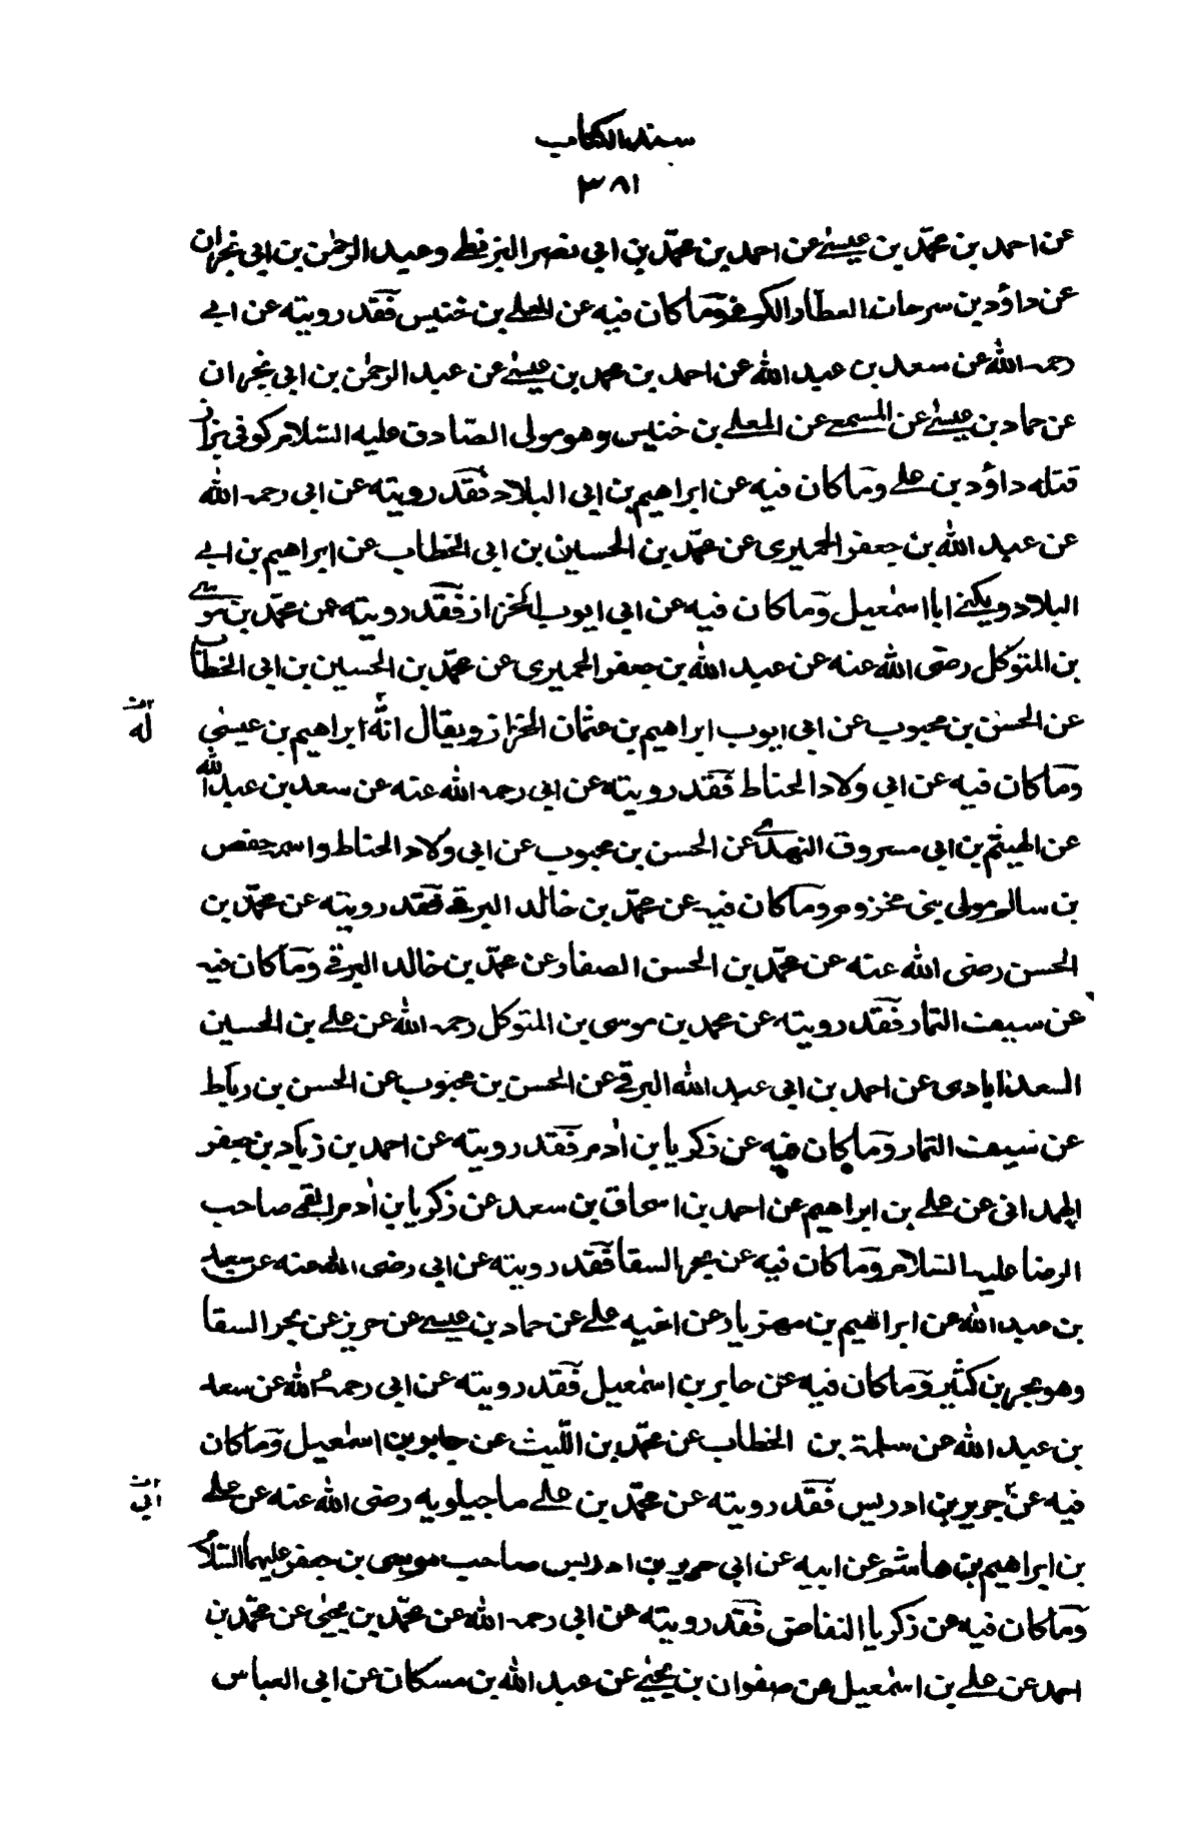 سند الكتاب
٣٨١
عن احمد بن محمّد بن عيسىٰ عن احمد بن محمّد بن ابي نصر البزنطے وعبد الرحمٰن بن ابي نجران
عن داؤد بن سرحان العطّار الكوفے وَمَا كان فيه عن المعلے بن خنيس فَقَد رويته عن ابے
رحمه الله عن سعد بن عبد الله عن احمد بن محمد بن عيسےٰ عن عبد الرحمٰن بن ابي نجران
عن حماد بن عيسےٰ عن المسمع عن المعلے بن خنيس وهو مولى الصّادق عليه السّلام كوفى بزاز
قتله داؤد بن علے وَمَا كان فيه عن ابراهيم بن ابى البلاد فَقَد رويته عن ابى رحمه الله
عن عبد الله بن جعفر الحميرى عن محمّد بن الحسين بن ابى الخطاب عن ابراهيم بن ابے
البلاد ويكنے ابا اسمٰعيل وَمَا كان فيه عن ابى ايوب الخزاز فَقَد رويته عن محمّد بن موسے
بن المتوكل رضى الله عنه عن عبد الله بن جعفر الحميرى عن محمّد بن الحسين بن ابى الخطاب
عن الحسن بن محبوب عن ابى ايوب ابراهيم بن عثمان الخزاز ويقال انّهٗ ابراهيم بن عيسٰى
له
وَمَا كان فيه عن ابى ولاد الحناط فَقَد رويته عن ابى رحمه الله عنه عن سعد بن عبد الله
عن الهيثم بن ابى مسروق النهدے عن الحسن بن محبوب عن ابى ولاد الحناط واسمه حفص
بن سالم مولى بنى مخزوم وَمَا كان فيه عن محمّد بن خالد البرقے فَقَد رويته عن محمّد بن
الحسن رضى الله عنه عن محمّد بن الحسن الصفار عن محمّد بن خالد البرقے وَمَا كان فيه
عن سيف التمار فَقَد رويته عن محمد بن موسى بن المتوكل رحمه الله عن علے بن الحسين
السعدابادى عن احمد بن ابى عبد الله البرقے عن الحسن بن محبوب عن الحسن بن رباط
عن سيف التمار وَمَا كان فيه عن ذكريا بن اٰدم فَقَد رويته عن احمد بن زياد بن جعفر
الهمدانى عن علے بن ابراهيم عن احمد بن اسحاق بن سعد عن ذكريا بن اٰدم القمے صاحب
الرضا عليه السّلام وَمَا كان فيه عن بحر السقا فَقَد رويته عن ابى رضى الله عنه عن سعد
بن عبد الله عن ابراهيم بن مهزيار عن اخيه علے عن حماد بن عيسے عن حريز عن بحر السقا
وهو بحر بن كثير وَمَا كان فيه عن جابر بن اسمٰعيل فَقَد رويته عن ابى رحمه الله عن سعد
بن عبد الله عن سلمة بن الخطاب عن محمّد بن اللّيث عن جابر بن اسمٰعيل وَمَا كان
فيه عن جرير بن ادريس فَقَد رويته عن محمّد بن علے ماجيلويه رضى الله عنه عن علے
ابى
بن ابراهيم بن هاشم عن ابيه عن ابى جرير بن ادريس صاحب موسى بن جعفر عليهما السّلام
وَمَا كان فيه عن ذكريا النقاض فَقَد رويته عن ابى رحمه الله عن محمّد بن يحيٰى عن محمّد بن
احمد عن علے بن اسمٰعيل عن صفوان بن يحيٰے عن عبد الله بن مسكان عن ابى العباس